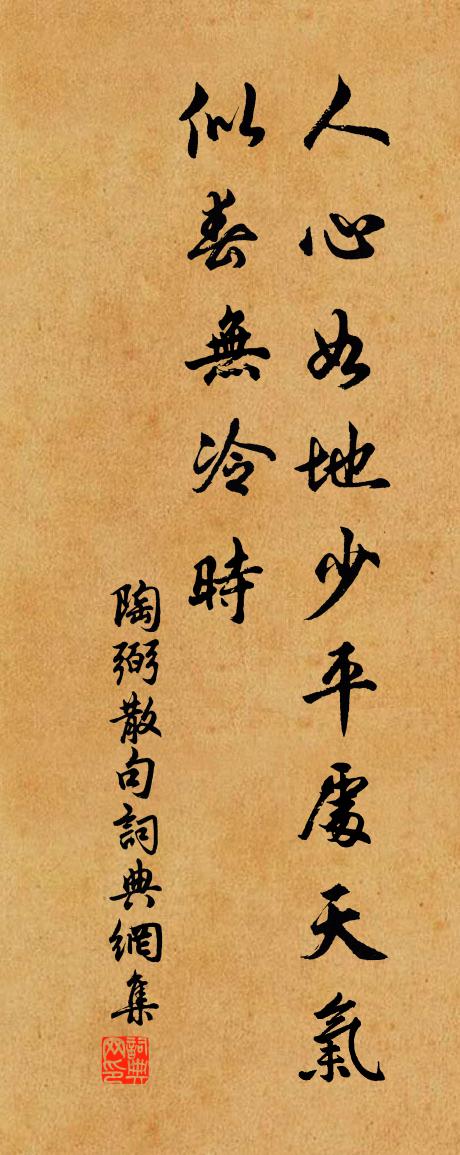 人心如地少平處天氣
似春無冷時
陶弼散句詞典網集
詞典网印